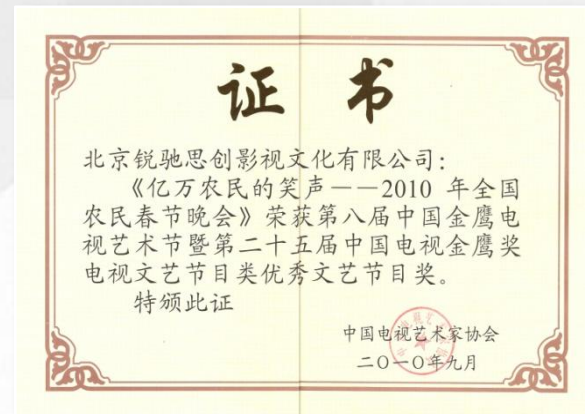 证书
北京锐驰思创影视文化有限公司：
《亿万农民的笑声——2010 年全国
农民春节晚会》荣获第八届中国金鹰电
视艺术节暨第二十五届中国电视金鹰奖
电视文艺节目类优秀文艺节目奖。
特颁此证
中国电视艺术家协会
二〇一〇年九月